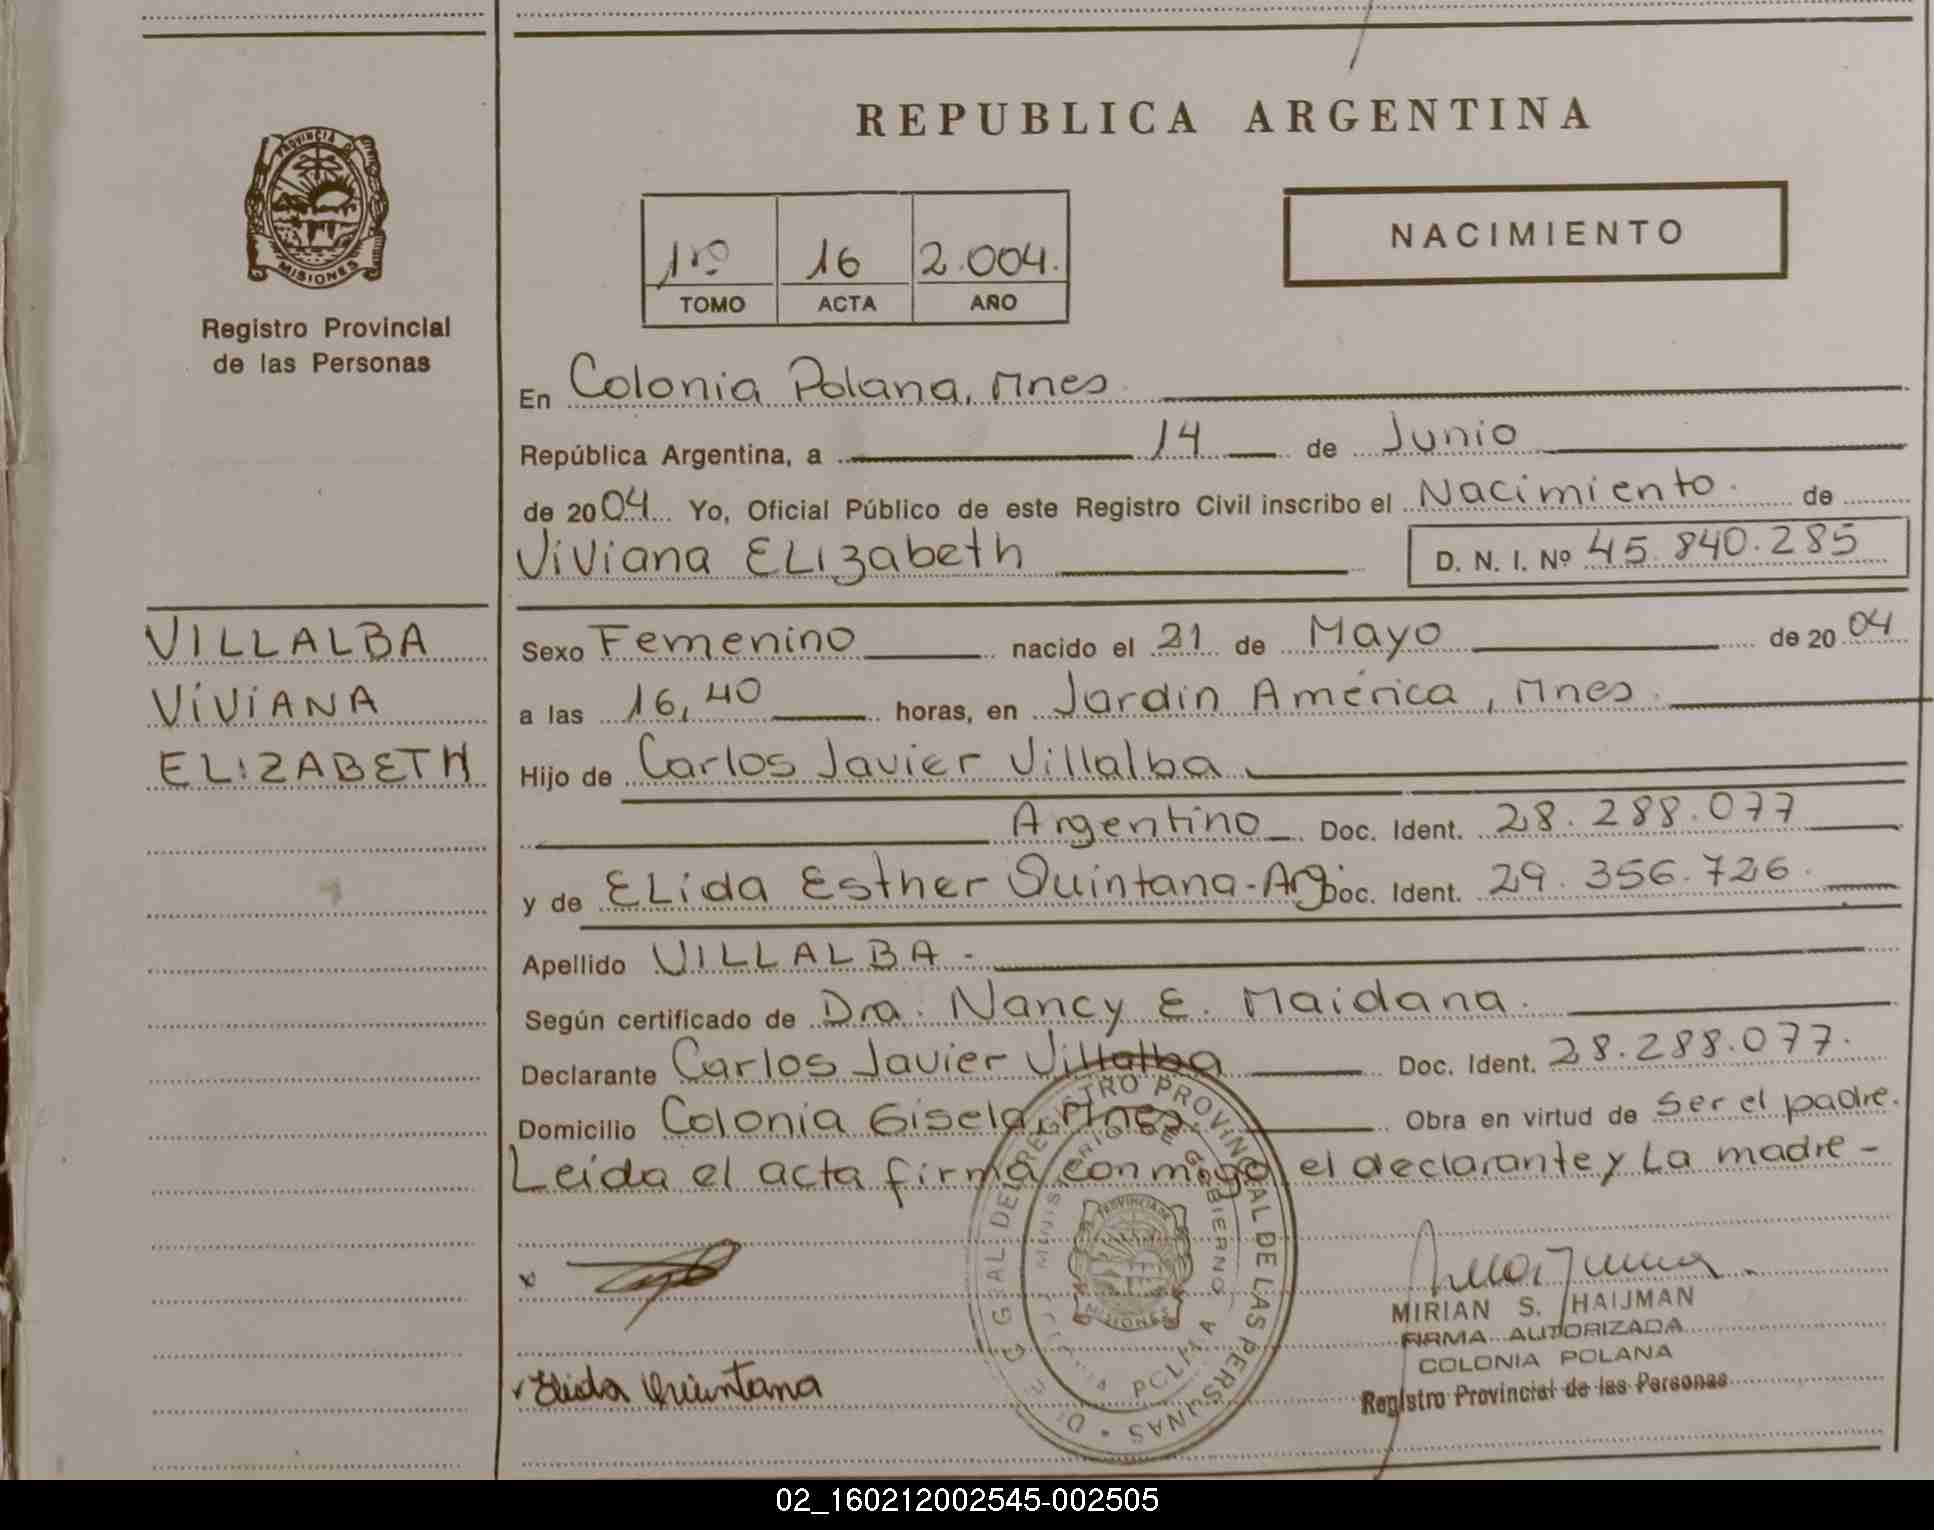 REPUBLICA ARGENTINA
PROVINCIA DE
MISIONES
Registro Provincial
de las Personas
1ro 16 2.004.
TOMO ACTA AÑO
NACIMIENTO
En Colonia Polana, Mnes.
República Argentina, a 14 de Junio
de 2004 Yo, Oficial Público de este Registro Civil inscribo el Nacimiento. de
Viviana ELizabeth D. N. I. Nº 45.840.285
VILLALBA
VIVIANA
ELIZABETH
Sexo Femenino nacido el 21 de Mayo de 2004
a las 16,40 horas, en Jardin América, Mnes.
Hijo de Carlos Javier Villalba
Argentino Doc. Ident. 28.288.077
y de ELida Esther Quintana-Arg. Doc. Ident. 29.356.726.
Apellido VILLALBA -
Según certificado de Dra. Nancy E. Maidana.
Declarante Carlos Javier Villalba Doc. Ident. 28.288.077.
Domicilio Colonia Gisela, Mnes. Obra en virtud de Ser el padre.
Leida el acta firma conmigo el declarante y La madre -
x
Elida Quintana
REGISTRO PROVINCIAL DE LAS PERSONAS
MINISTERIO DE GOBIERNO
PROVINCIA DE
MISIONES
MIRIAN S. HAIJMAN
FIRMA AUTORIZADA
COLONIA POLANA
Registro Provincial de las Personas
02_160212002545-002505